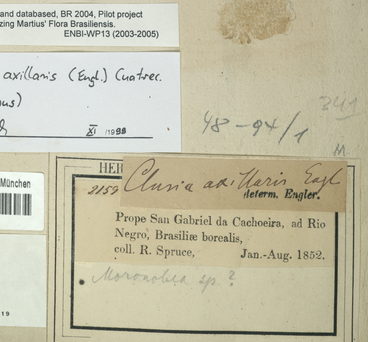 and databased, BR 2004, Pilot project
zing Martius' Flora Brasiliensis.
ENBI-WP13 (2003-2005)
axillaris (Engl.) Cuatrec.
us)
XI /1998
48-94/1
341
M.
München
19
HER
2152 Clusia axillaris Engl
determ. Engler.
Prope San Gabriel da Cachoeira, ad Rio
Negro, Brasiliæ borealis,
coll. R. Spruce, Jan.-Aug. 1852.
Moronobea sp.?